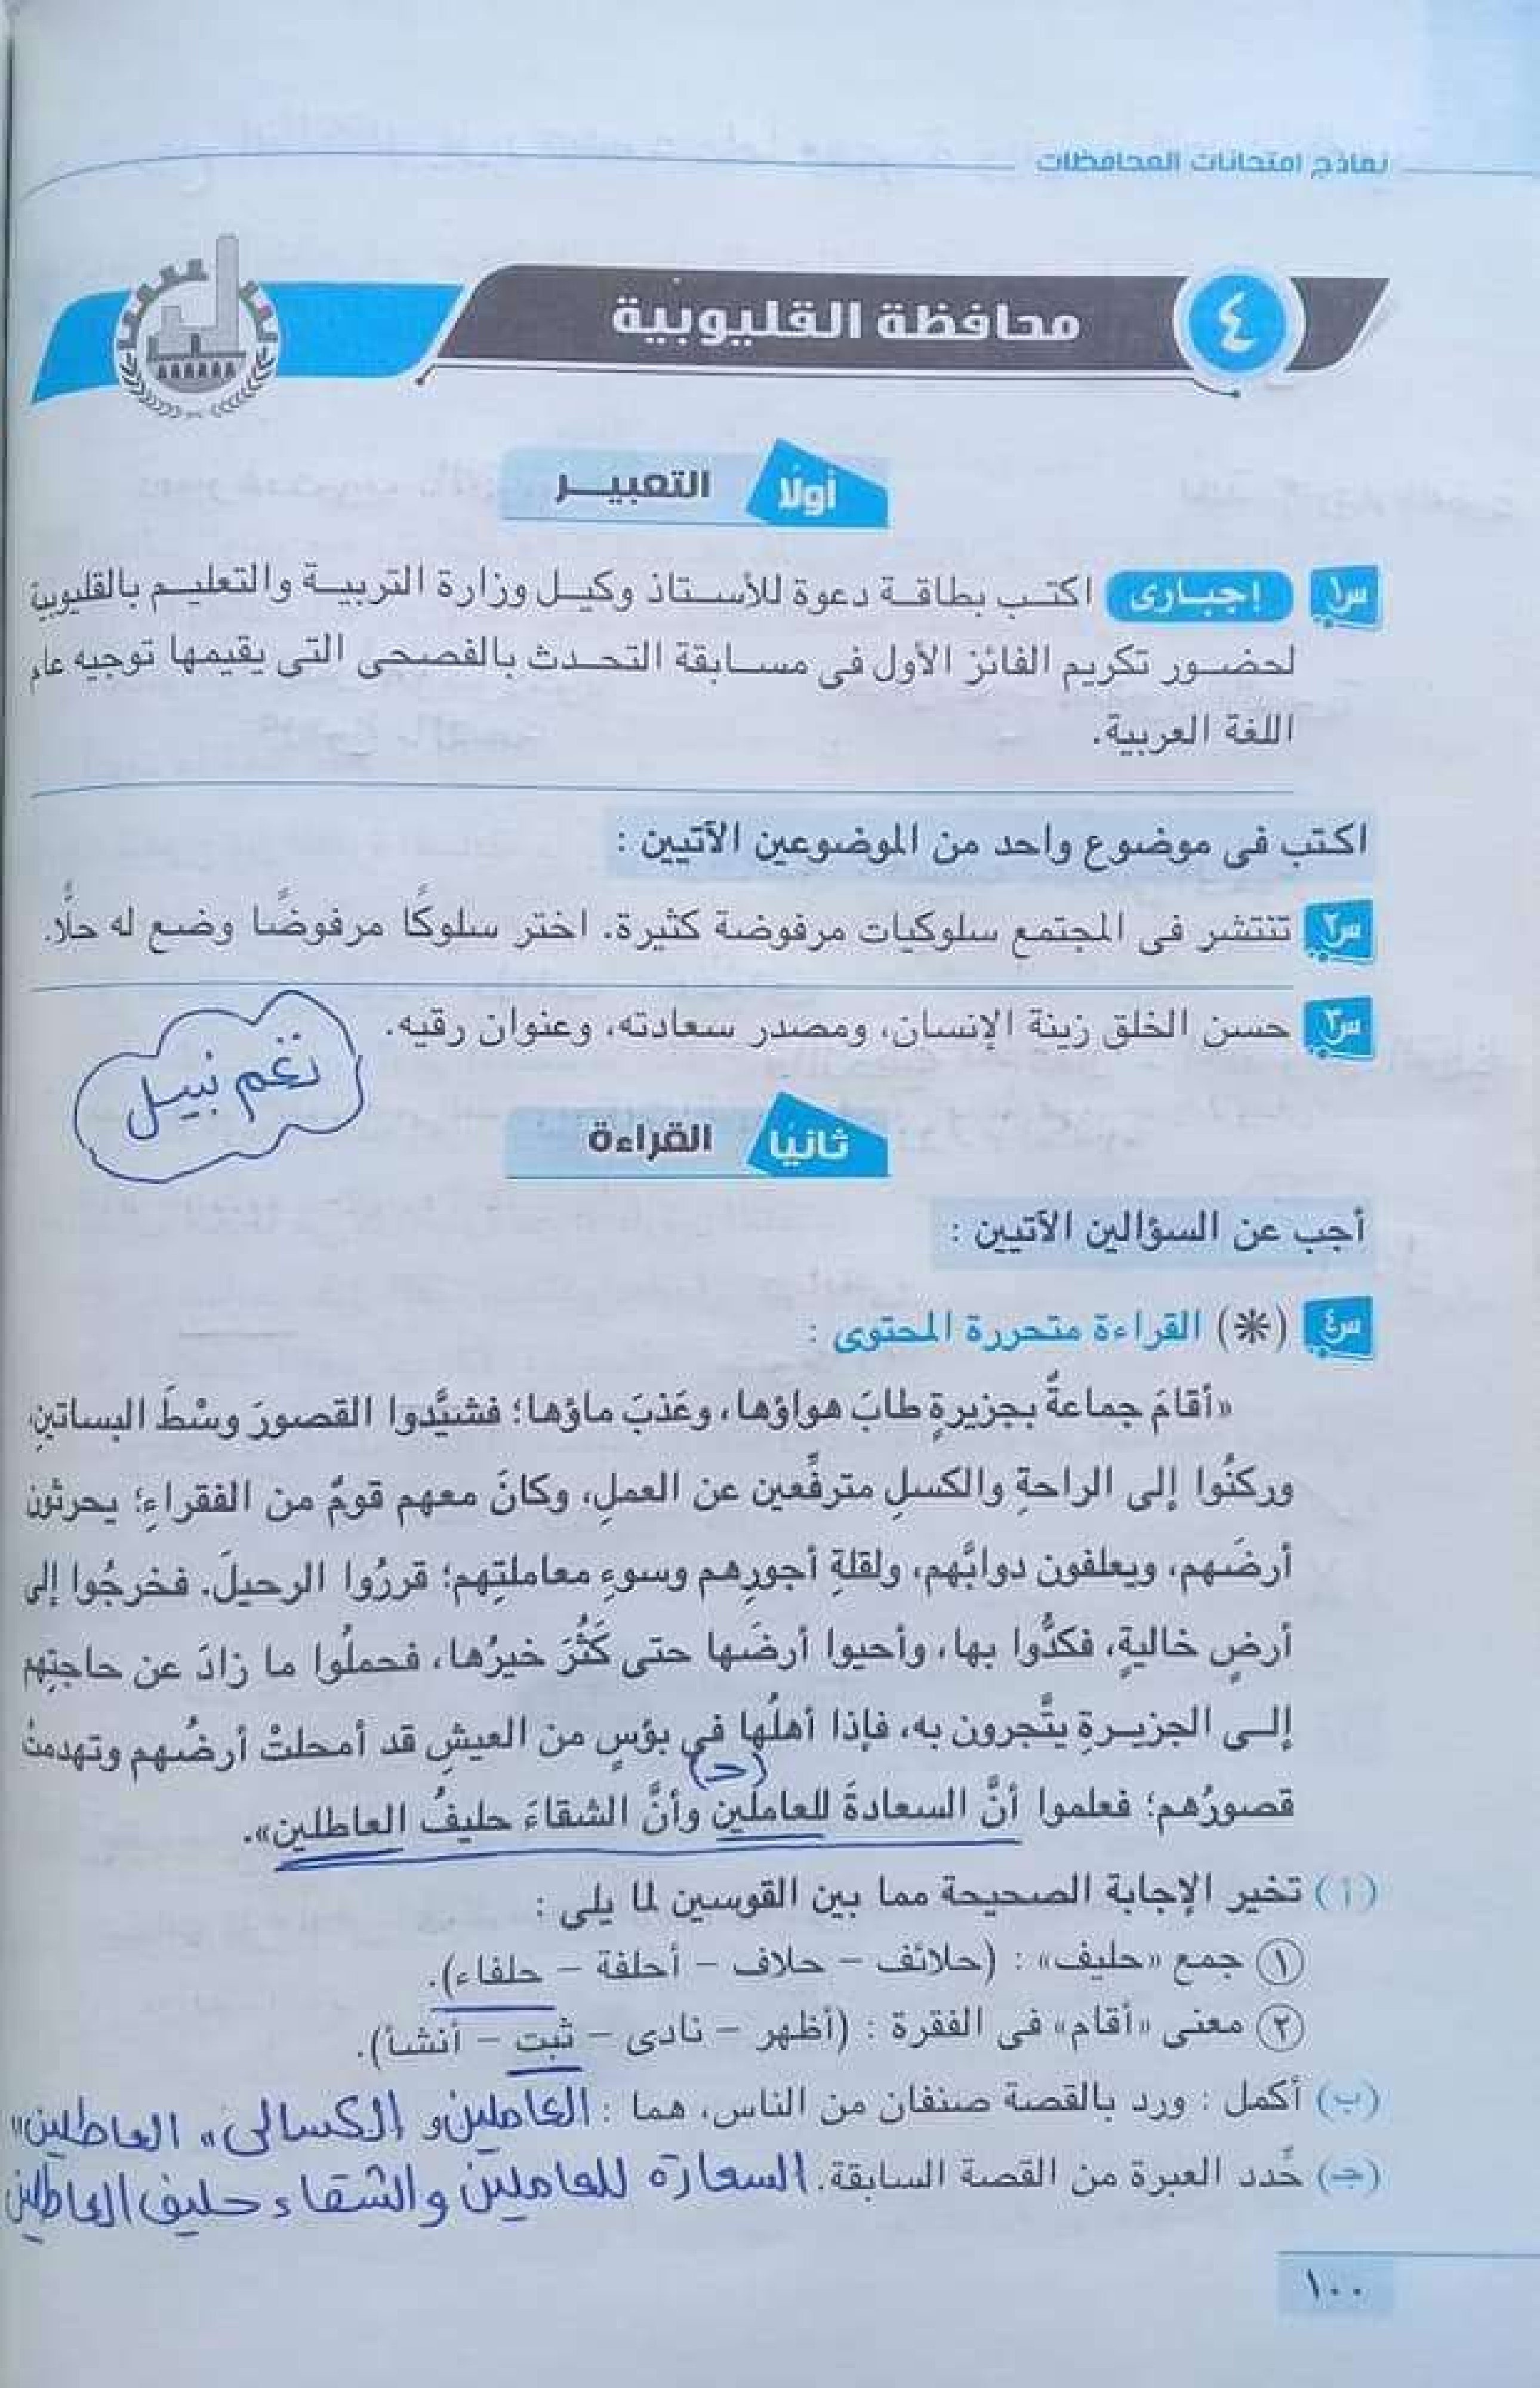 نماذج امتحانات المحافظات
٤ محافظة القليوبية
أولًا التعبيـــر
س١ إجبارى اكتب بطاقة دعوة للأستاذ وكيل وزارة التربية والتعليم بالقليوبية
لحضور تكريم الفائز الأول فى مسابقة التحدث بالفصحى التى يقيمها توجيه عام
اللغة العربية.
اكتب فى موضوع واحد من الموضوعين الآتيين :
س٢ تنتشر فى المجتمع سلوكيات مرفوضة كثيرة. اختر سلوكًا مرفوضًا وضع له حلًّا.
س٣ حسن الخلق زينة الإنسان، ومصدر سعادته، وعنوان رقيه.
نغم نبيل
ثانيًا القراءة
أجب عن السؤالين الآتيين :
س٤ (*) القراءة متحررة المحتوى :
«أقامَ جماعةٌ بجزيرةٍ طابَ هواؤها، وعَذبَ ماؤها؛ فشيَّدوا القصورَ وسْطَ البساتينِ،
وركنُوا إلى الراحةِ والكسلِ مترفِّعين عن العملِ، وكانَ معهم قومٌ من الفقراءِ؛ يحرثون
أرضَهم، ويعلفون دوابَّهم، ولقلةِ أجورِهم وسوءِ معاملتِهم؛ قررُوا الرحيلَ. فخرجُوا إلى
أرضٍ خاليةٍ، فكدُّوا بها، وأحيوا أرضَها حتى كَثُرَ خيرُها، فحملُوا ما زادَ عن حاجتِهم
إلــى الجزيــرةِ يتَّجرون به، فإذا أهلُها في بؤسٍ من العيشِ قد أمحلتْ أرضُهم وتهدمتْ
(جـ)
قصورُهم؛ فعلموا أنَّ السعادةَ للعاملين وأنَّ الشقاءَ حليفُ العاطلين».
(أ) تخير الإجابة الصحيحة مما بين القوسين لما يلى :
١ جمع «حليف» : (حلائف – حلاف – أحلفة – حلفاء).
٢ معنى «أقام» فى الفقرة : (أظهر – نادى – ثبت – أنشأ).
(ب) أكمل : ورد بالقصة صنفان من الناس، هما : العاملين و الكسالى "العاطلين"
(جـ) حدد العبرة من القصة السابقة. السعادة للعاملين والشقاء حليف العاطلين
١٠٠